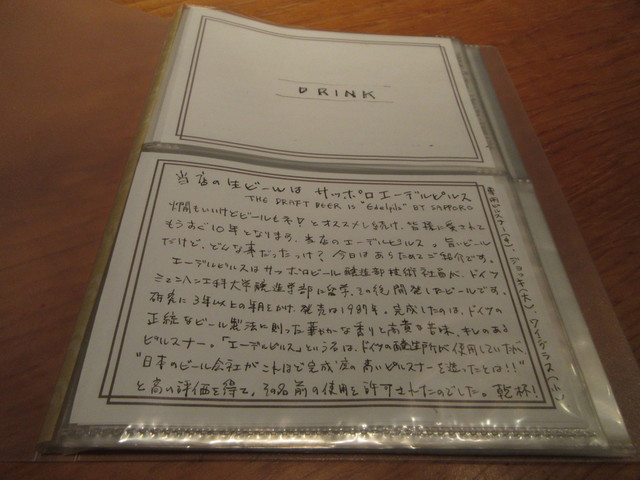 DRINK
当店の生ビールは サッポロエーデルピルス
THE DRAFT BEER IS "Edelpils" BY SAPPORO
燗もいいけどビールもネ！とオススメし続け、皆様に愛されて
もうすぐ10年となります。当店のエーデルピルス。旨いビール
だけど、どんな事だったっけ？今日はあらためてご紹介です。
エーデルピルスはサッポロビール醸造部技術社員が、ドイツ
ミュンヘン工科大学醸造学部に留学、その後開発したビールです。
研究に3年以上の年月をかけ、発売は1987年。完成したのは、ドイツの
正統なビール製法に則った華やかな香りと高貴な苦味、キレのある
ピルスナー。「エーデルピルス」という名は、ドイツの醸造所が使用していたが
"日本のビール会社がこれほど完成度の高いピルスナーを造ったとは！！"
と高い評価を得て、その名前の使用を許可されたのでした。乾杯！
ピルスナー(中)・ジョッキ(大)・ワイングラス(小)